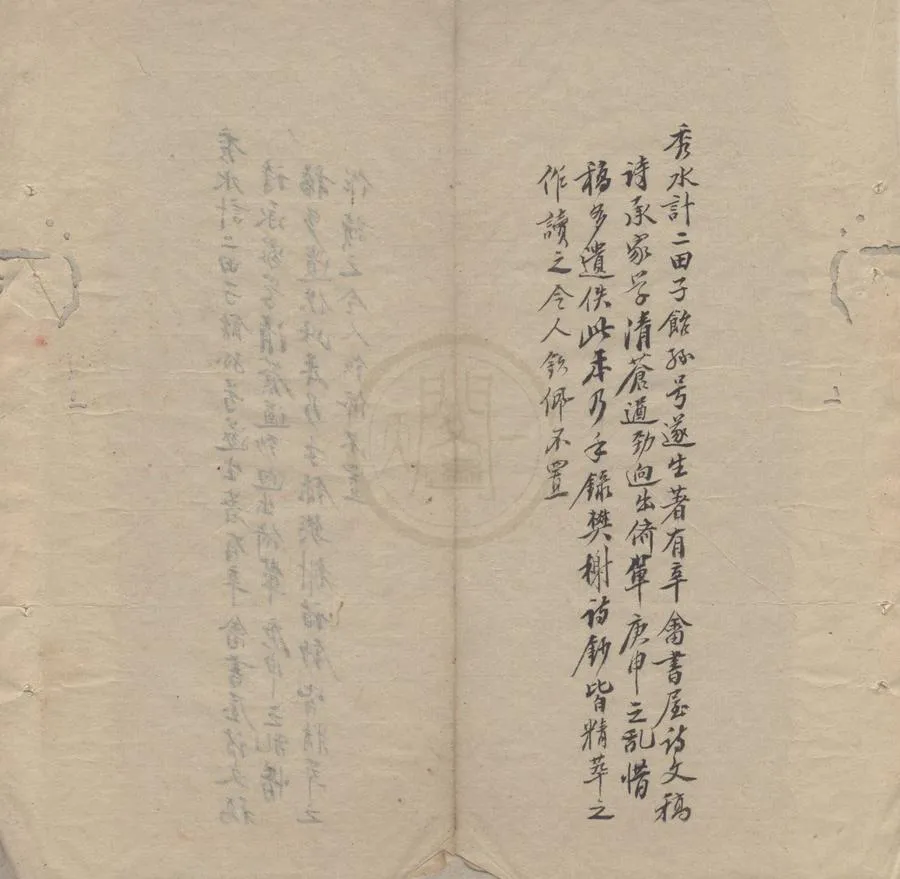 秀水計二田子飴孫号遂生著有畬書屋詩文稿
詩承家学清蒼遒勁迥出儕輩庚申之乱惜
稿多遺佚此本乃手録樊榭詩鈔皆精萃之
作讀之令人欽佩不置